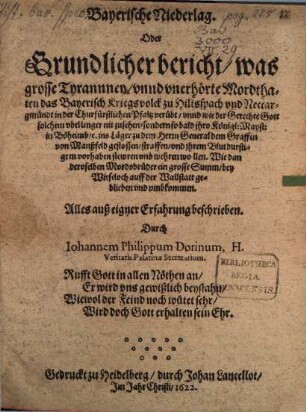 Bayerische Niederlag.
Oder
Grundlicher bericht/ was
grosse Tyrannney/ vnnd vnerhörte Mordtha-
ten das Bayerisch Kriegsvolck zu Hilispach vnd Neccar-
gmündt in der Churfürstlichen Pfaltz verübt/ vnnd wie der Gerechte Gott
solchem vbel lenger nit zusehen/ sondern so bald ihro Königl: Mayst:
in Böheimb/ ꝛc. ins Läger zu dem Herrn General dem Graffen
von Manßfeld gestossen/ straffen/ vnd ihrem Blutdursti-
gen vorhaben stewren vnd wehren wollen. Wie dan
deroselben Mordsbrüder ein grosse Summ/ bey
Wißeloch auff der Wallstatt ge-
blieben vnd vmbkommen.
Alles auß eigner Erfahrung beschrieben.
Durch
Iohannem Philippum Dorinum, H.
Veritatis Palatinæ Secretarium.
Rufft Gott in allen Nöthen an/
Er wird vns gewißlich beystahn/
Wiewol der Feind noch wütet sehr/
Wird doch Gott erhalten sein Ehr.
BIBLIOTHECA
REGIA
MONACENSIS.
Gedruckt zu Heidelberg/ durch Johan Lancellot/
Im Jahr Christi/ 1622.